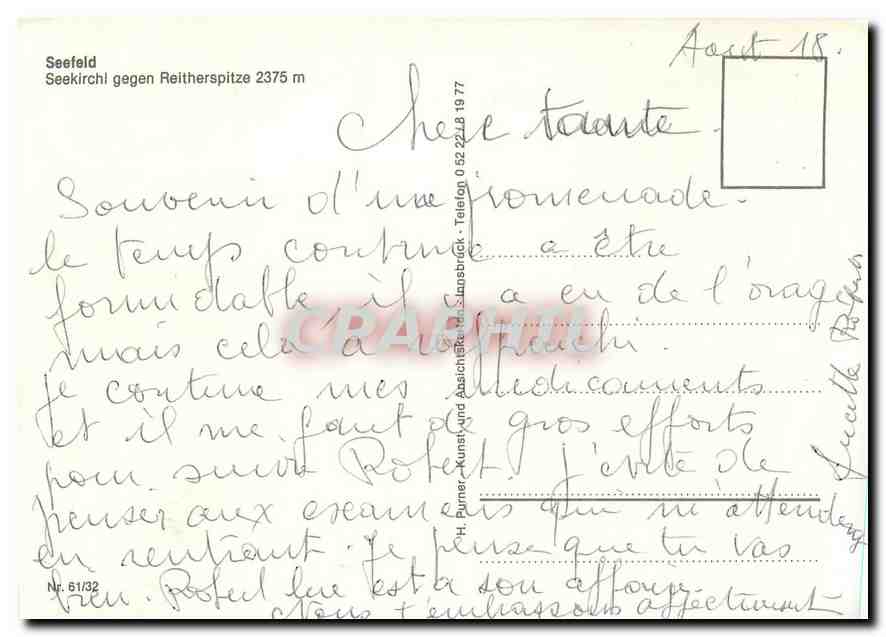 Seefeld
Seekirchl gegen Reitherspitze 2375 m
Aout 18.
Chere taante.
Souvenir d'une promenade.
le temps continue a être
formidable il y a eu de l'orage
mais cela a rafraichi.
je continue mes medicaments
et il me faut de gros efforts
pour suivre Robert. j'evite de
penser aux examens qui m'attendent
en rentrant. je pense que tu vas
bien. Robert lui est a son affaire.
Nous t'embrassons affectivement
Lucette Robert
H. Purner - Kunst- und Ansichtskarten - Innsbruck - Telefon 0 52 22 / 8 19 77
Nr. 61/32
CPAPHIL